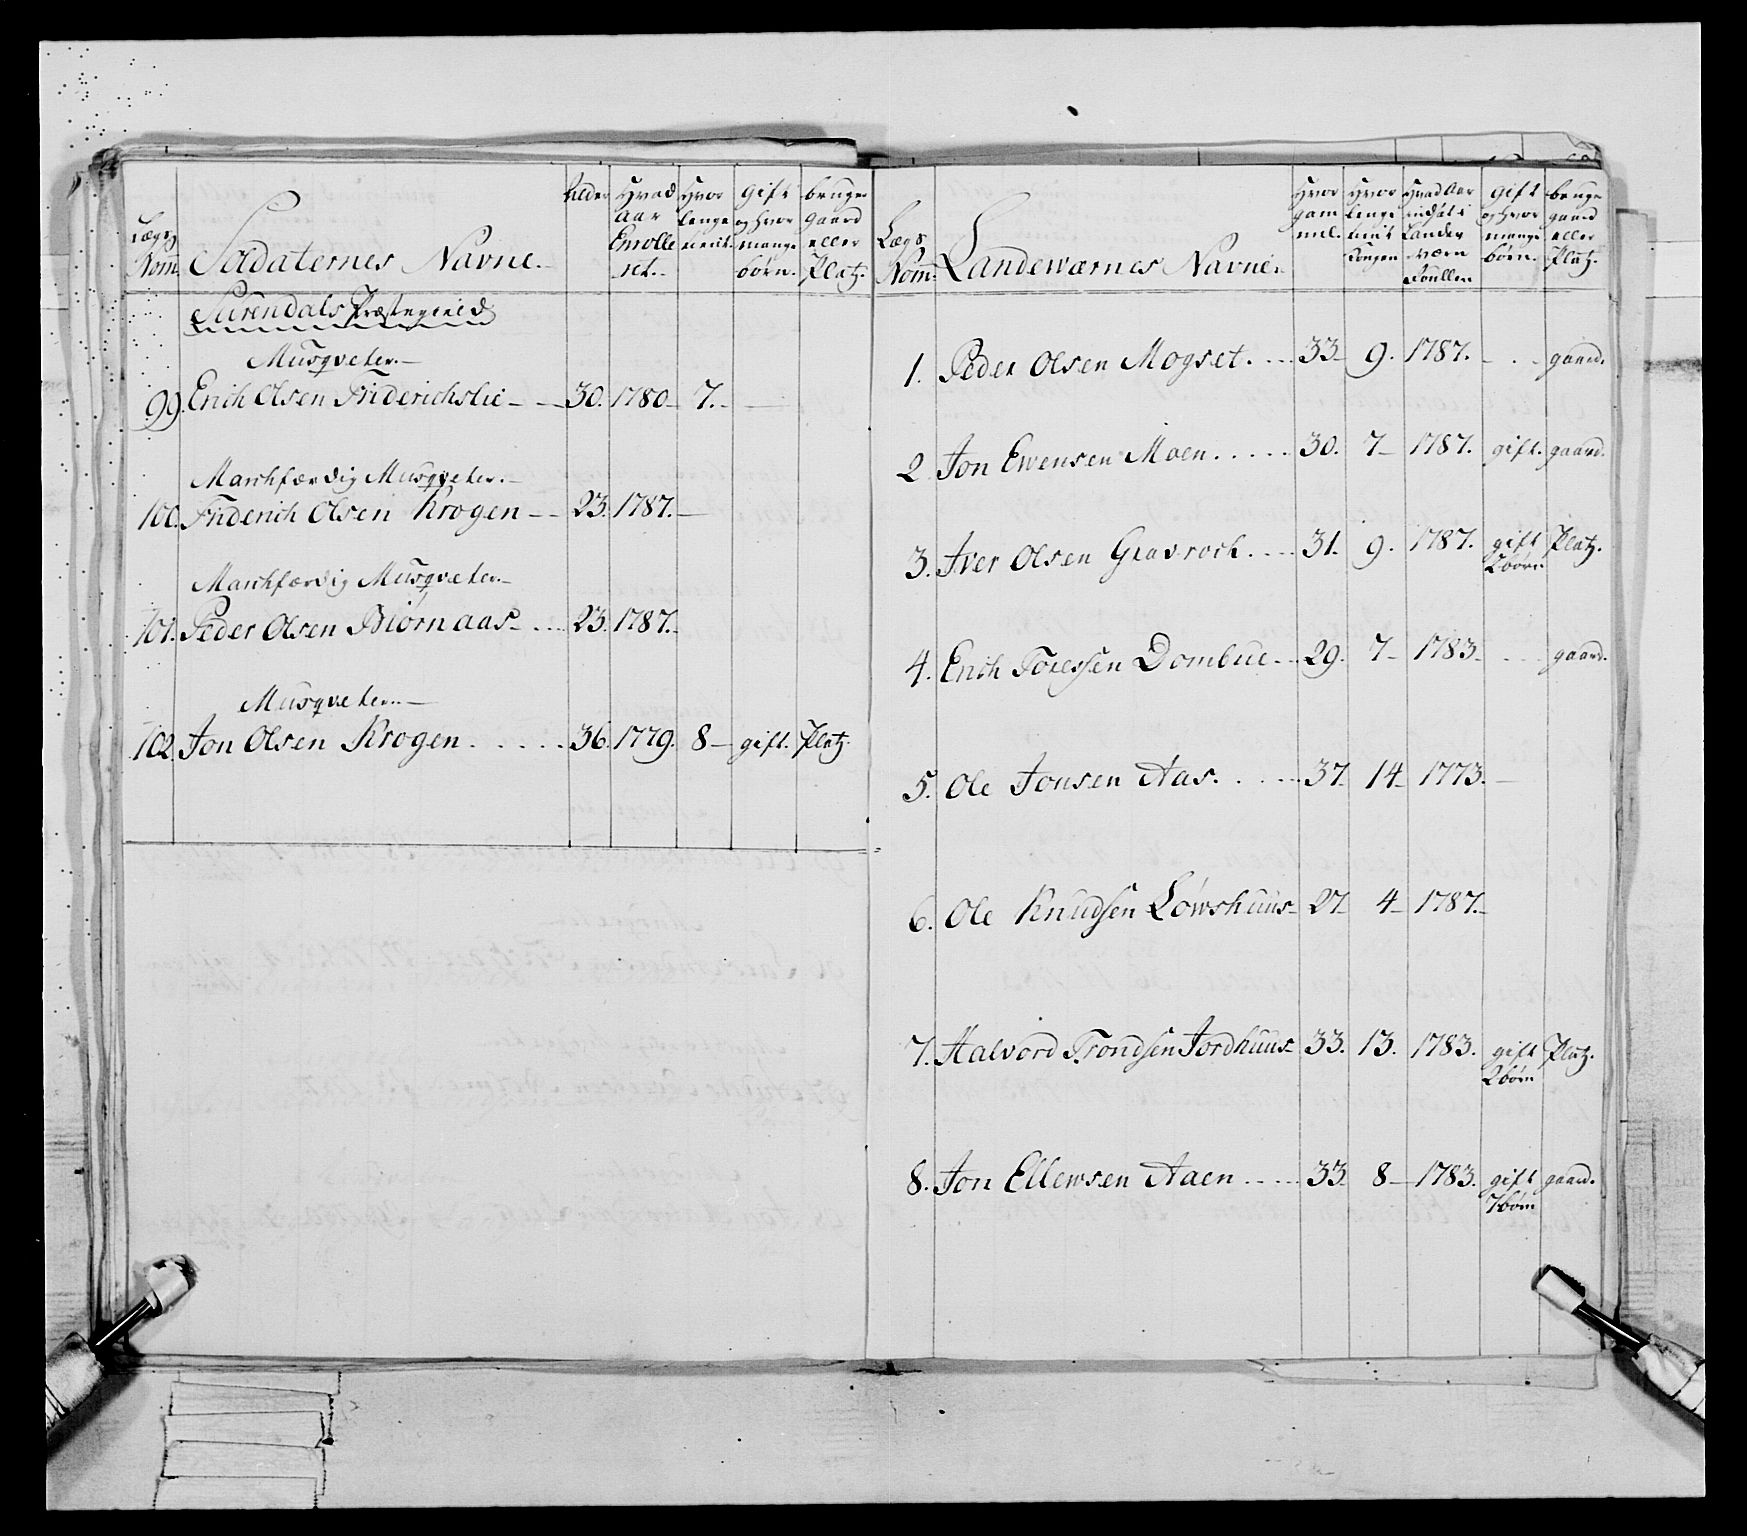 Lægs Nom̄.
Soldaternes Navne.
Alder
Hvad Aar Enrolleret.
Hvor lenge tient.
Gift og hvor mange børn.
bruger gaard eller Platz.
Surendals Præstegield
Musqveter.
99. Erich Olsen Friderichslie 30. 1780 7.
Marchfærdig Musqveter.
100. Friderich Olsen Krogen 23. 1787.
Marchfærdig Musqveter.
101. Peder Olsen Biørnaas 23. 1787.
Musqveter.
102. Jon Olsen Krogen 36. 1779. 8 gift. Platz.
Lægs Nom̄.
Landewærnes Navne.
Hvor gammel.
Hvor lenge tient Kongen
Hvad Aar indsat i Landeværn Roullen
Gift og hvor mange børn.
bruger gaard eller Platz.
1. Peder Olsen Mogset. 33 9. 1787. gaard.
2. Jon Ewensen Moen. 30. 7 1787. gift. gaard.
3. Iver Olsen Gravroch. 31. 9. 1787. gift Platz.
2 børn
4. Erich Toresen Dombue 29. 7 1783. gaard.
5. Ole Jonsen Aas. 37. 14 1773.
6. Ole Knudsen Løwshuus 27. 4 1787.
7. Halvord Trondsen Jordhuus 33. 13. 1783. gift Platz.
2 børn
8. Jon Ellewsen Aaen 33. 8 1783. gift gaard.
7 børn